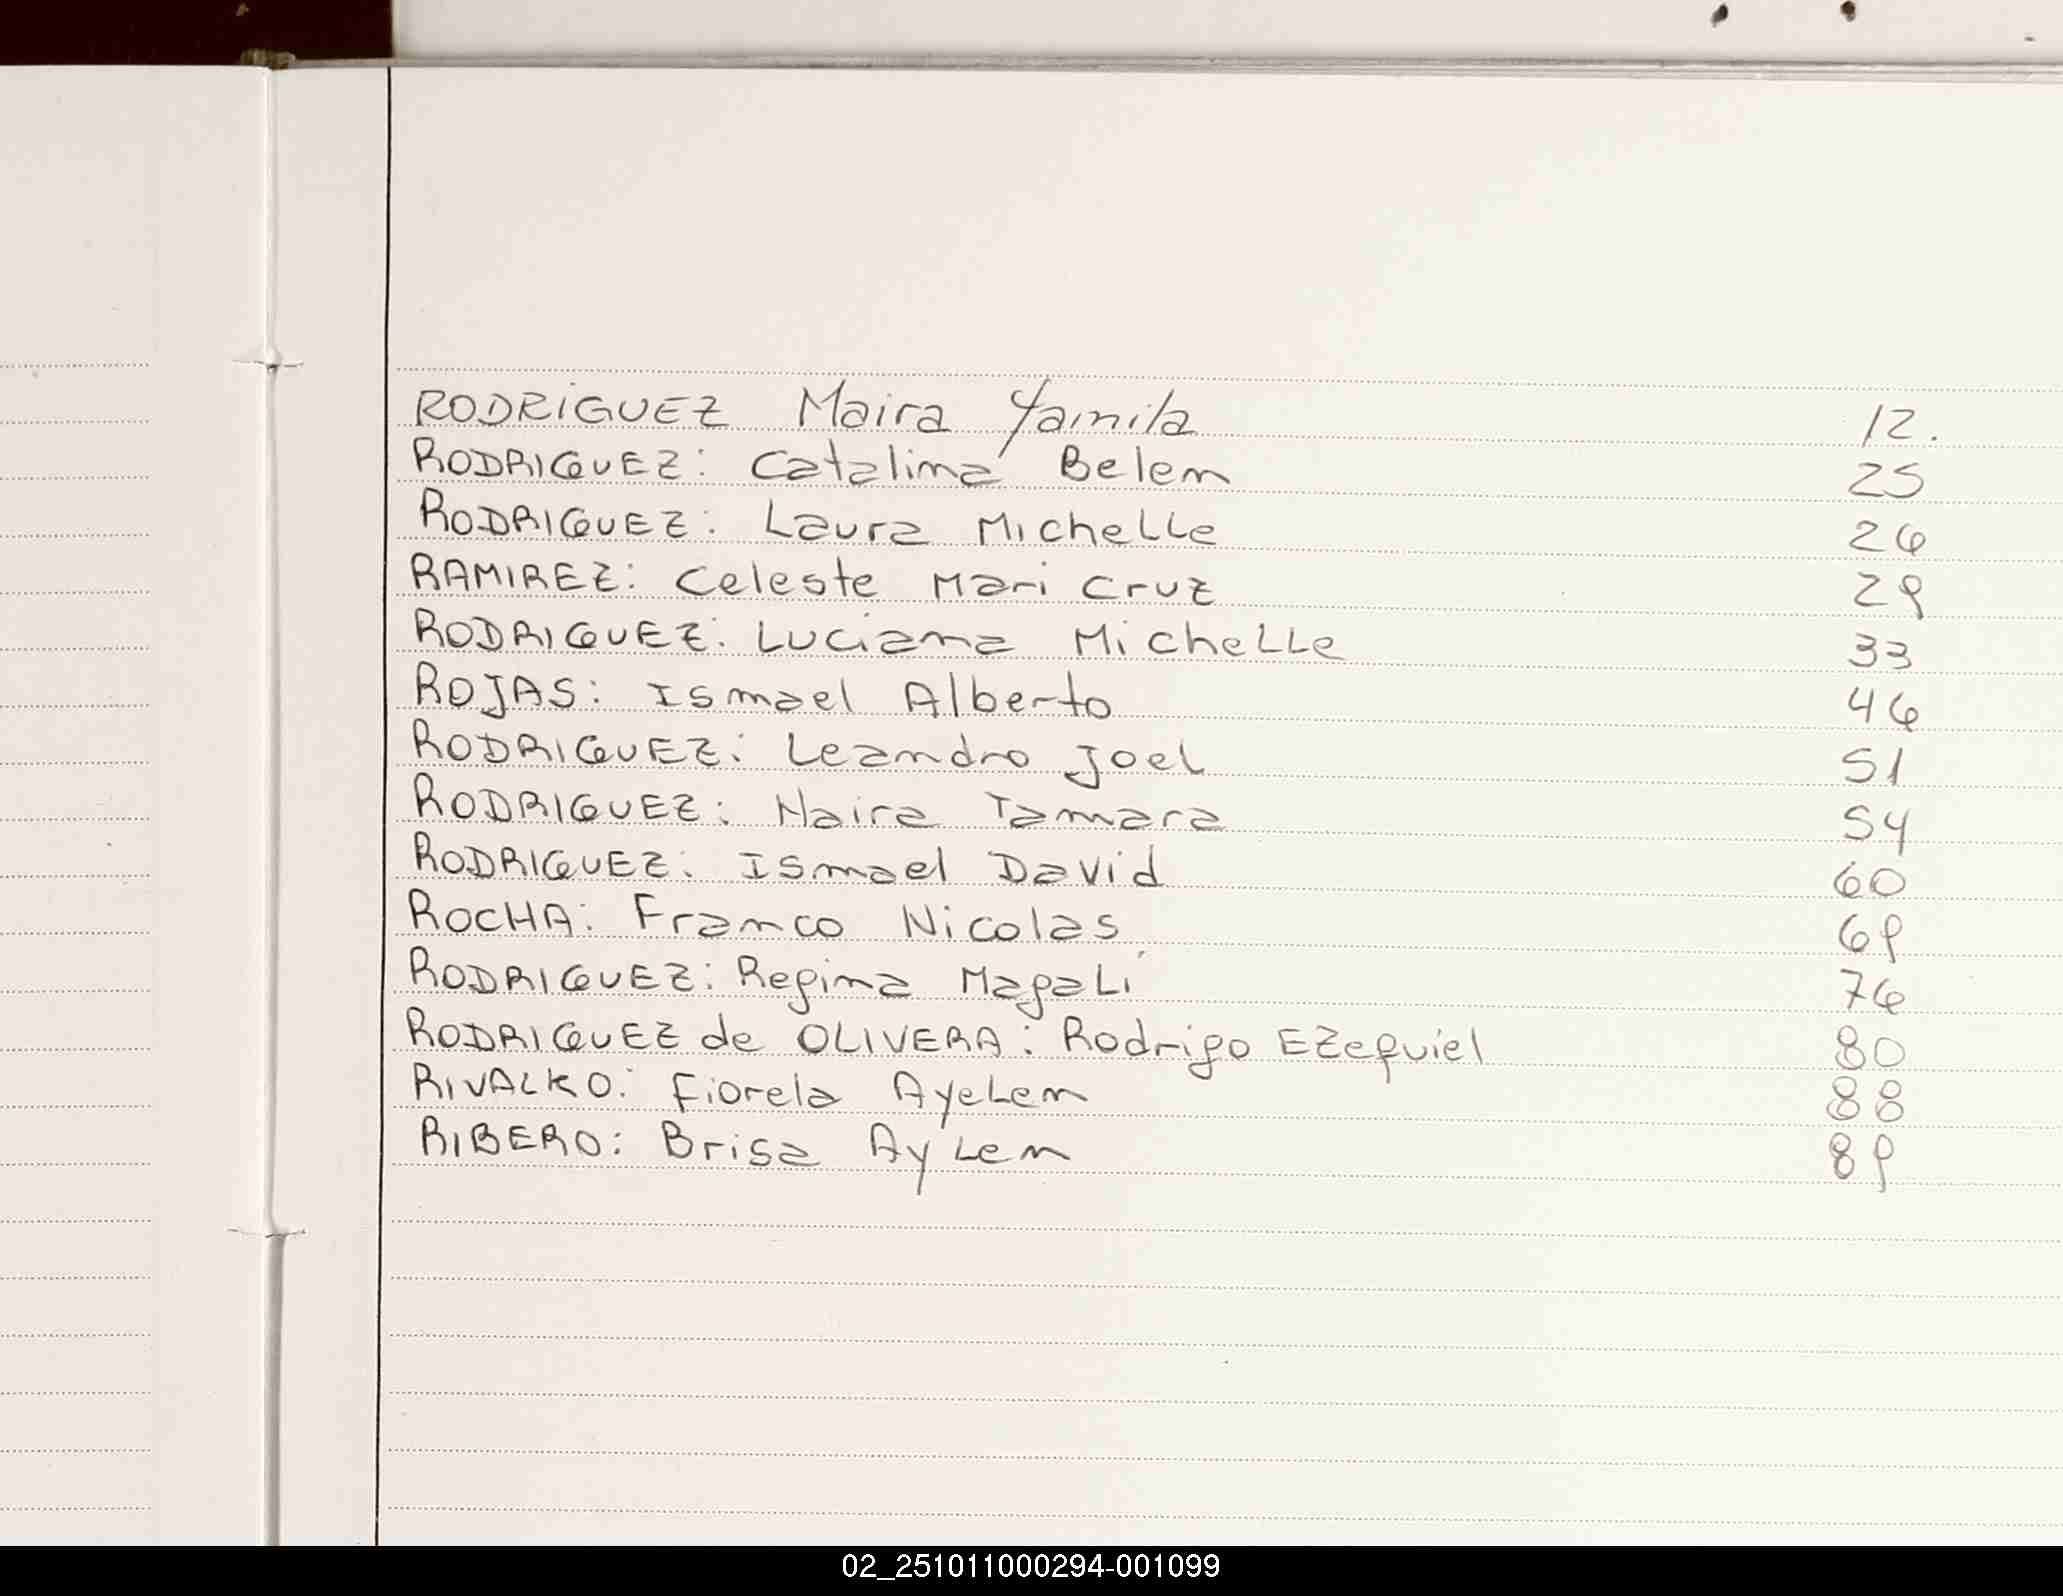 RODRIGUEZ Maira Yamila 12.
RODRIGUEZ: Catalina Belen 25
RODRIGUEZ: Laura Michelle 26
RAMIREZ: Celeste Mari Cruz 29
RODRIGUEZ: Luciana Michelle 33
ROJAS: Ismael Alberto 46
RODRIGUEZ: Leandro Joel 51
RODRIGUEZ: Naira Tamara 54
RODRIGUEZ: Ismael David 60
ROCHA: Franco Nicolas 69
RODRIGUEZ: Regina Magalí 76
RODRIGUEZ de OLIVERA: Rodrigo Ezequiel 80
RIVALKO: Fiorela Ayelen 88
RIBERO: Brisa Aylen 89
02_251011000294-001099